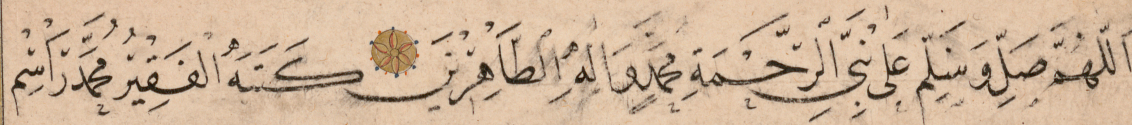 اَللّٰهُمَّ صَلِّ وَسَلِّمْ عَلٰى نَبِيِّ الرَّحْمَةِ مُحَمَّدٍ وَاٰلِهِ الطَّاهِرِيْنَ كَتَبَهُ الْفَقِيْرُ مُحَمَّد رَاسِم